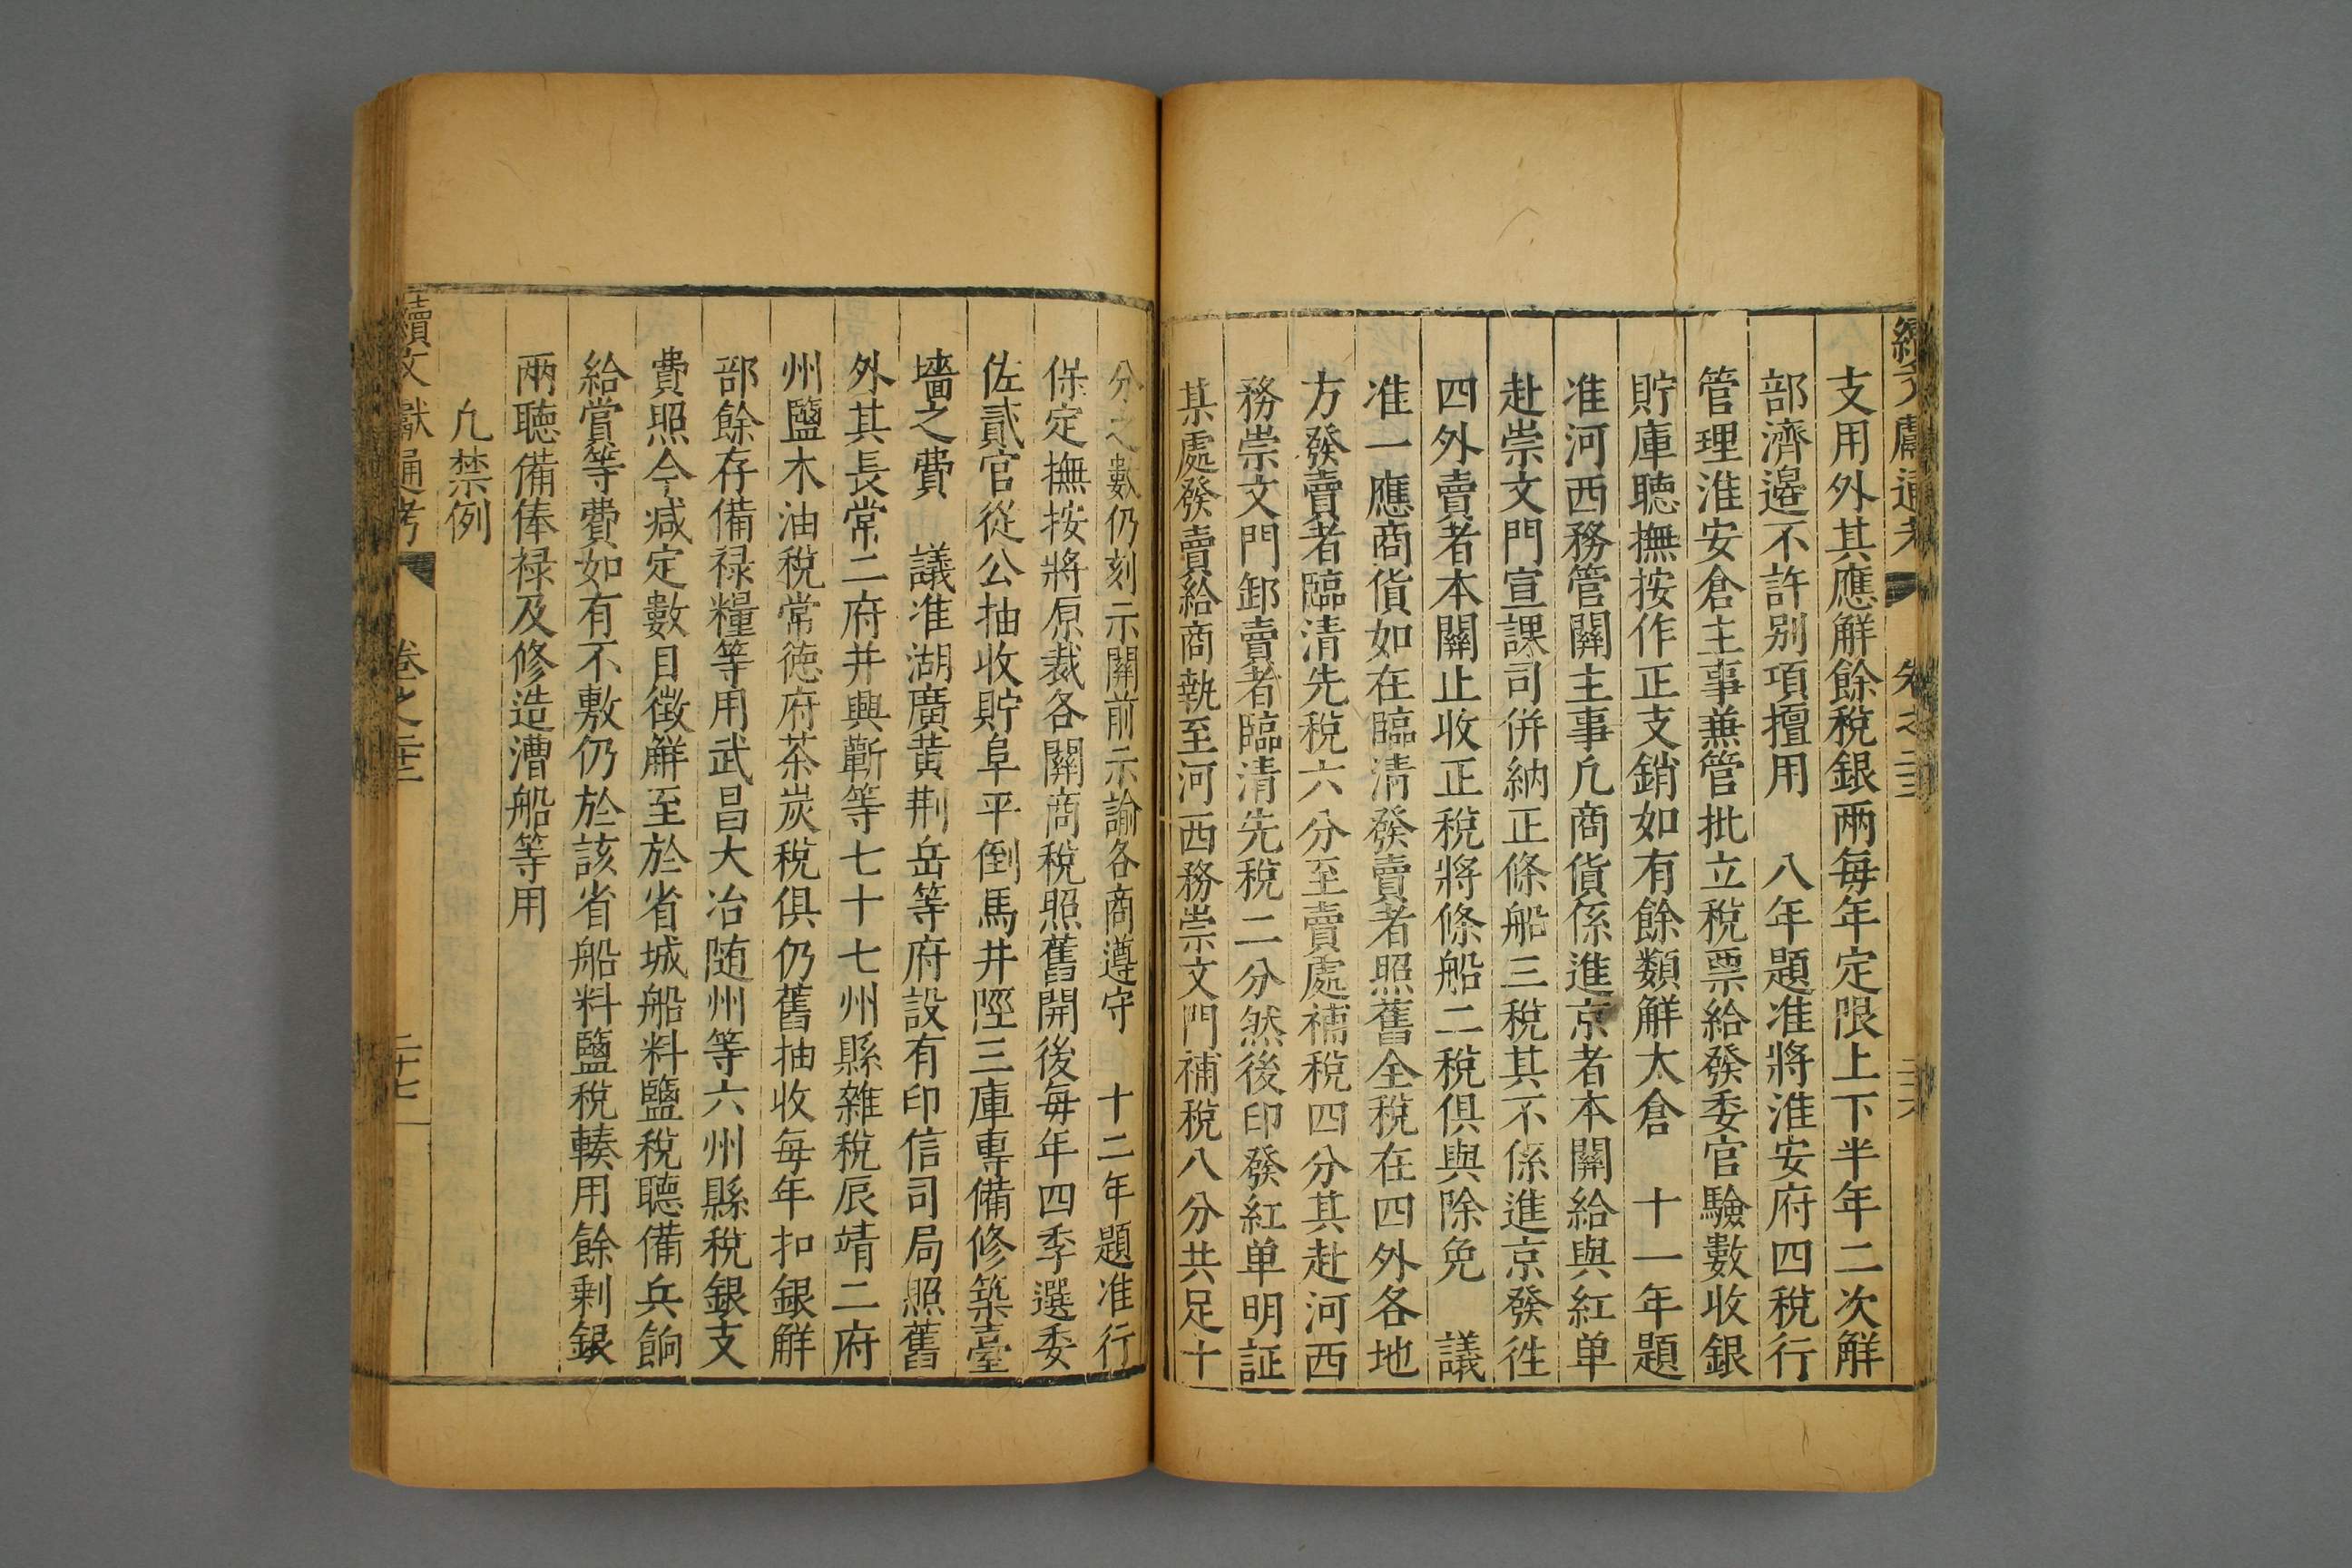 續文獻通考 卷之三十三 二十六
支用外其應解餘稅銀兩每年定限上下半年二次解
部濟邊不許别項擅用 八年題准將淮安府四稅行
管理淮安倉主事兼管批立稅票給發委官驗數收銀
貯庫聴撫按作正支銷如有餘類解太倉 十一年題
准河西務管關主事凢商貨係進京者本關給與紅单
赴崇文門宣課司併納正條船三稅其不係進京發徃
四外賣者本關止收正稅將條船二稅俱與除免 議
准一應商貨如在臨清發賣者照舊全稅在四外各地
方發賣者臨清先稅六分至賣處補稅四分其赴河西
務崇文門卸賣者臨清先稅二分然後印發紅单明証
某處發賣給商執至河西務崇文門補稅八分共足十
分之數仍刻示關前示諭各商遵守 十二年題准行
保定撫按將原裁各關商稅照舊開後每年四季選委
佐貳官從公抽收貯阜平倒馬井陘三庫專備修築臺
墻之費 議准湖廣黃荆岳等府設有印信司局照舊
外其長常二府并興蘄等七十七州縣雜稅辰靖二府
州鹽木油稅常徳府茶炭稅俱仍舊抽收每年扣銀解
部餘存備禄糧等用武昌大冶随州等六州縣稅銀支
費照今减定數目徵解至於省城船料鹽稅聽備兵餉
給賞等費如有不敷仍於該省船料鹽稅輳用餘剩銀
兩聴備俸禄及修造漕船等用
凢禁例
續文獻通考 卷之三十三 二十七